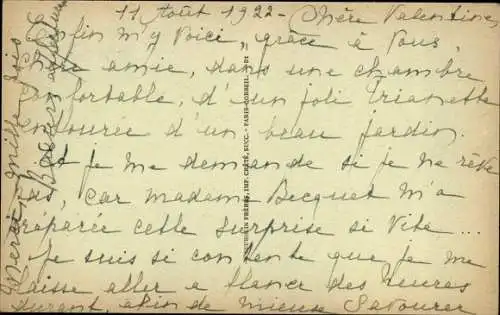 11 Août 1922 - Chère Valentine,
Enfin m'y voici, grâce à vous,
chère amie, dans une chambre
confortable, d'un joli Trianette
entourée d'un beau jardin.
Et je me demande si je ne rêve
pas, car madame Becquet m'a
préparée cette surprise si vite...
Je suis si contente que je me
laisse aller a flaner des heures
durant, afin de mieux savourer
Merci mille fois
Bons
FRÈRES, IMP. CRÉTÉ, SUCC. - PARIS-CORBEIL.